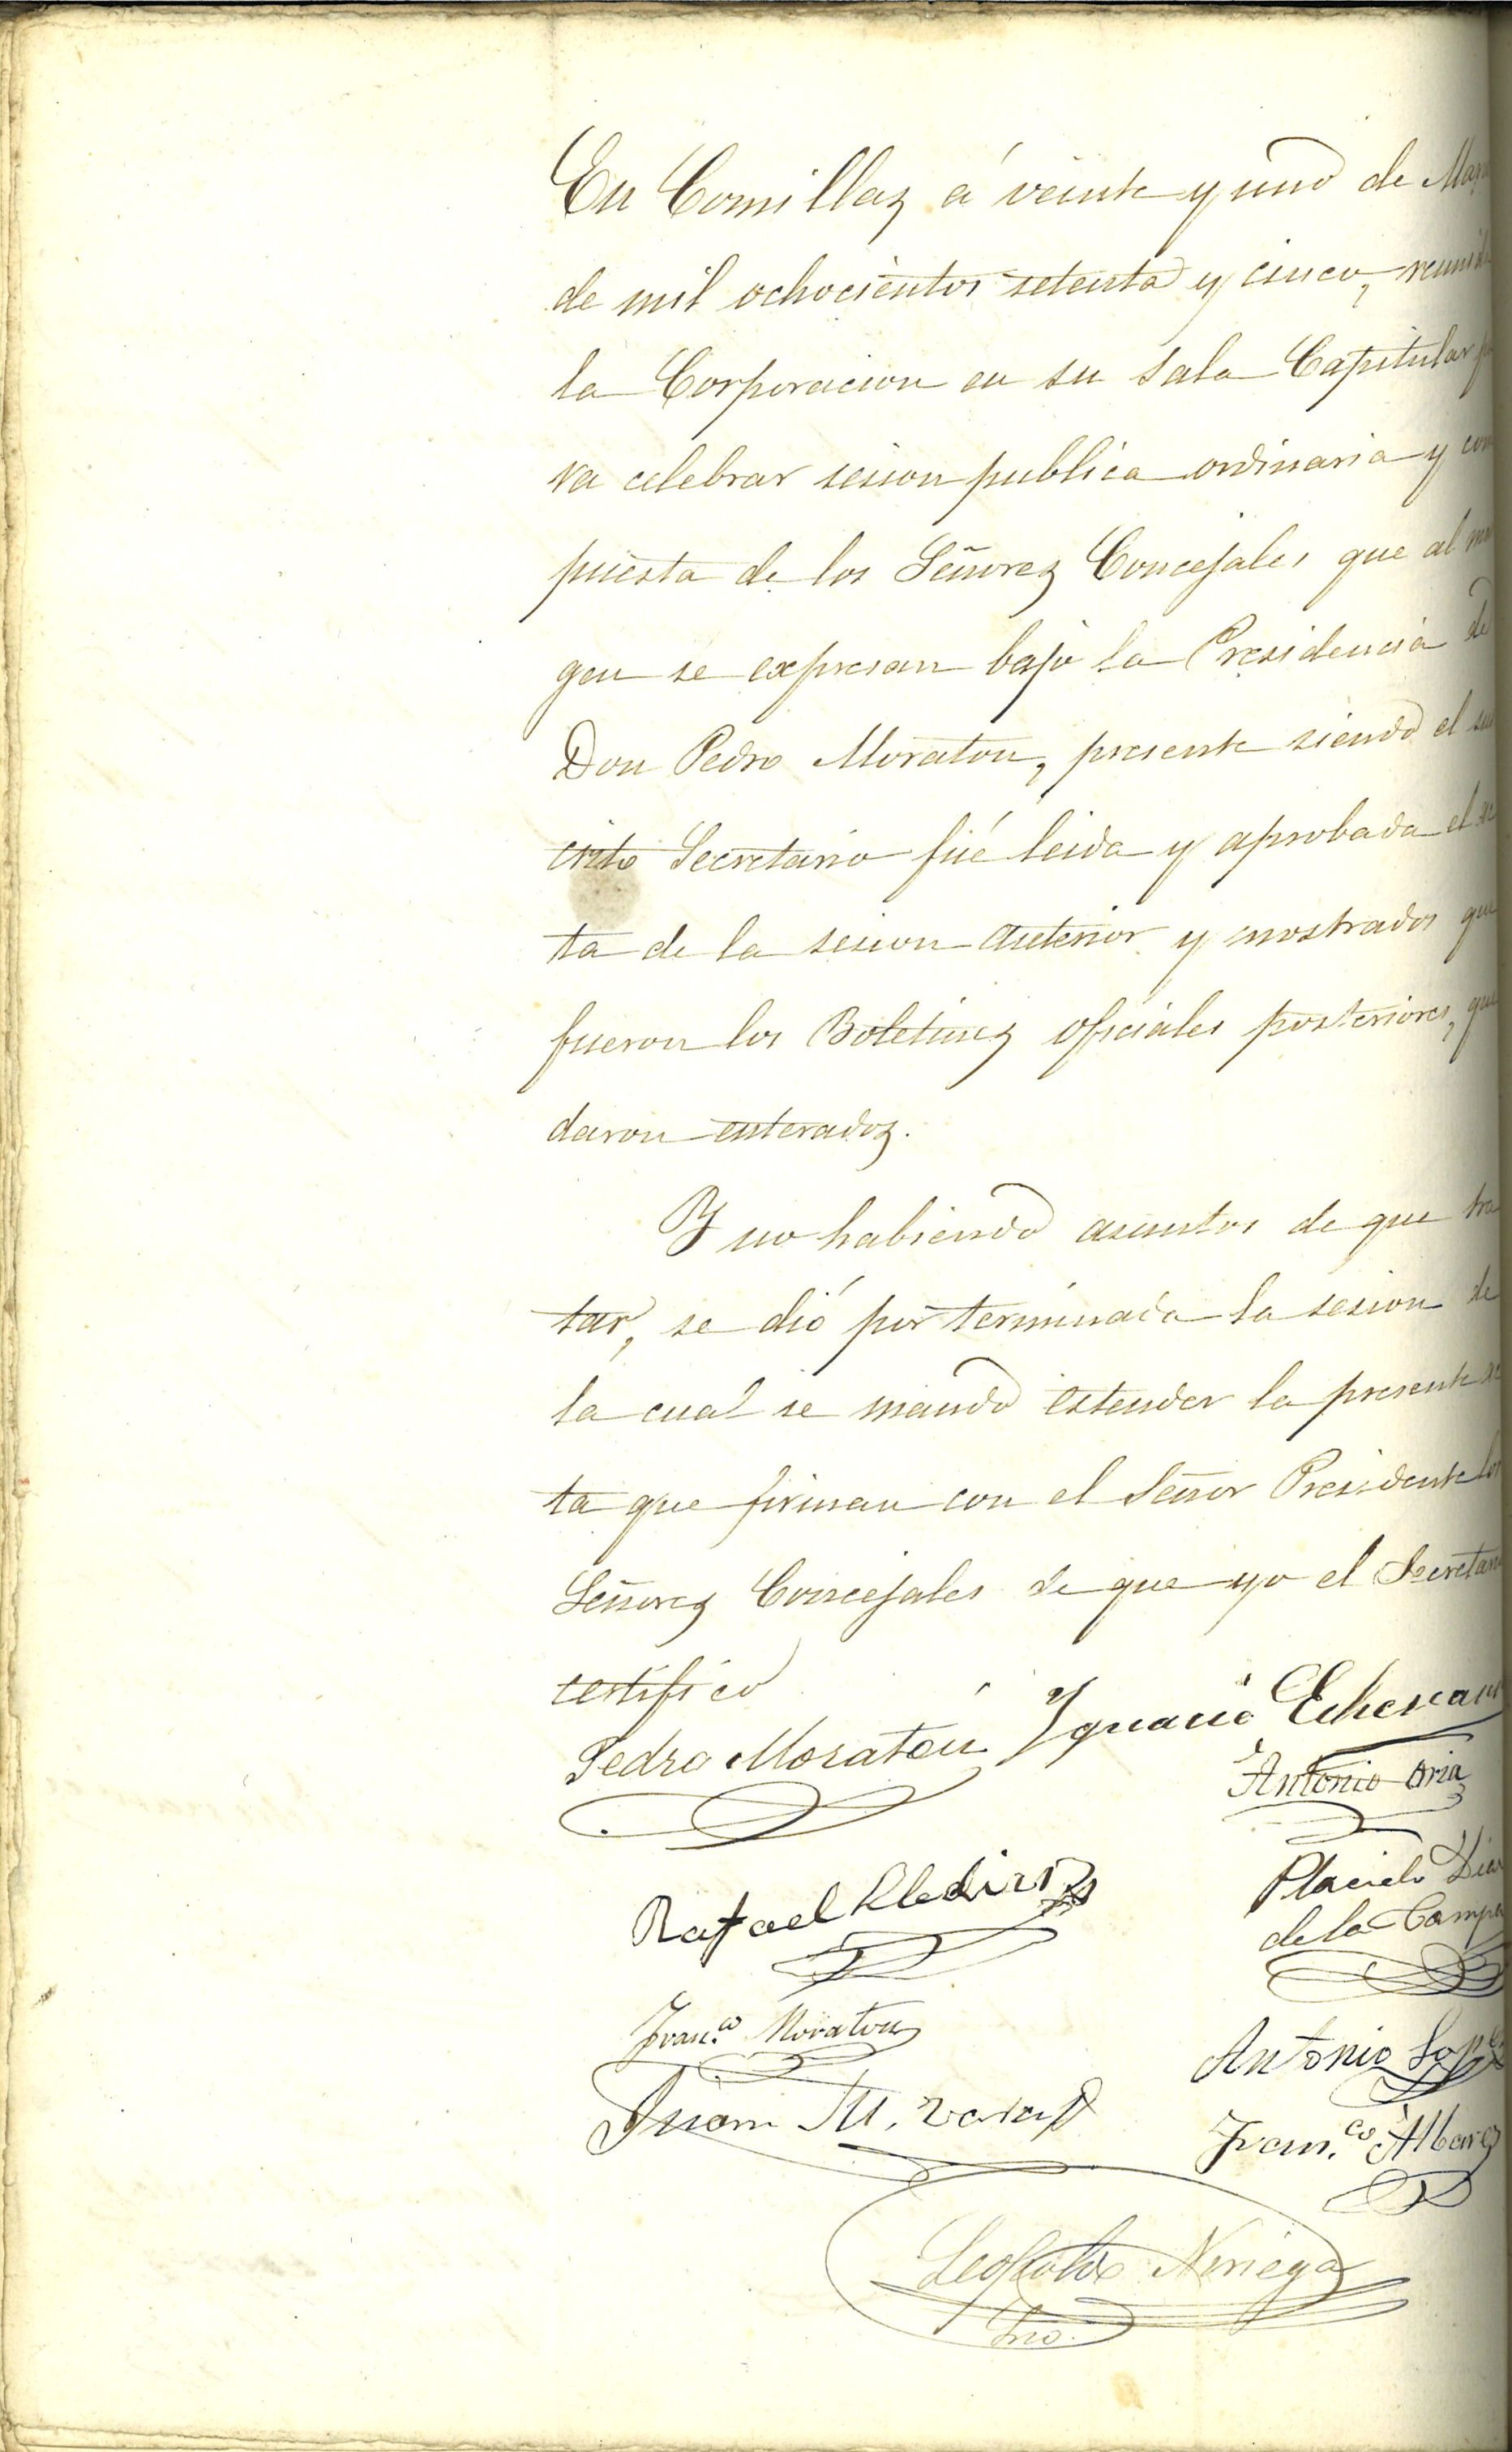 En Comillas á veinte y uno de
de mil ochocientos setenta y cinco, reunid
la Corporacion en su Sala Capitular
ra celebrar sesion publica ordinaria y com
puesta de los Señores Concejales que al
gen se expresan bajo la Presidencia de
Don Pedro Moraton, presente siendo el
crito Secretario fué leida y aprobada el
ta de la sesion anterior y mostrados que
fueron los Boletines oficiales posteriores, que
daron enterados.
Y no habiendo asuntos de que tra
tar, se dió por terminada la sesion de
la cual se mandó estender la presente ac
ta que firman con el Señor Presidente los
Señores Concejales de que yo el Secretario
certifico
Pedro Moratón Ygnacio Echevarr
Antonio Oria
Rafael
Placido
de la Campa
Fran.co Moraton
Antonio Lopez
Juan M.
Fran.co Albarez
Leopoldo Noriega
Srio.